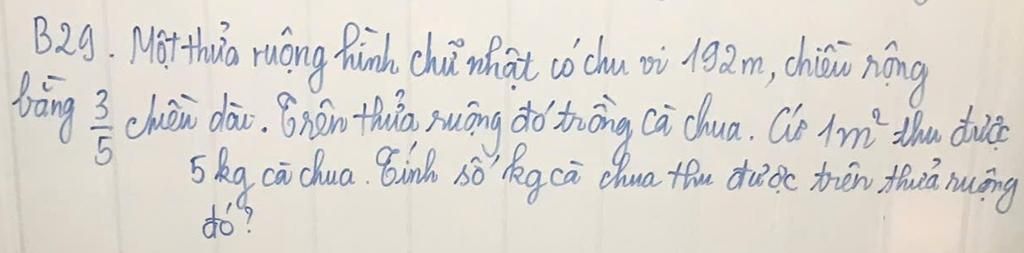 B29. Một thửa ruộng hình chữ nhật có chu vi 192m, chiều rộng
bằng 3/5 chiều dài. Trên thửa ruộng đó trồng cà chua. Cứ 1m² thu được
5kg cà chua. Tính số kg cà chua thu được trên thửa ruộng
đó?